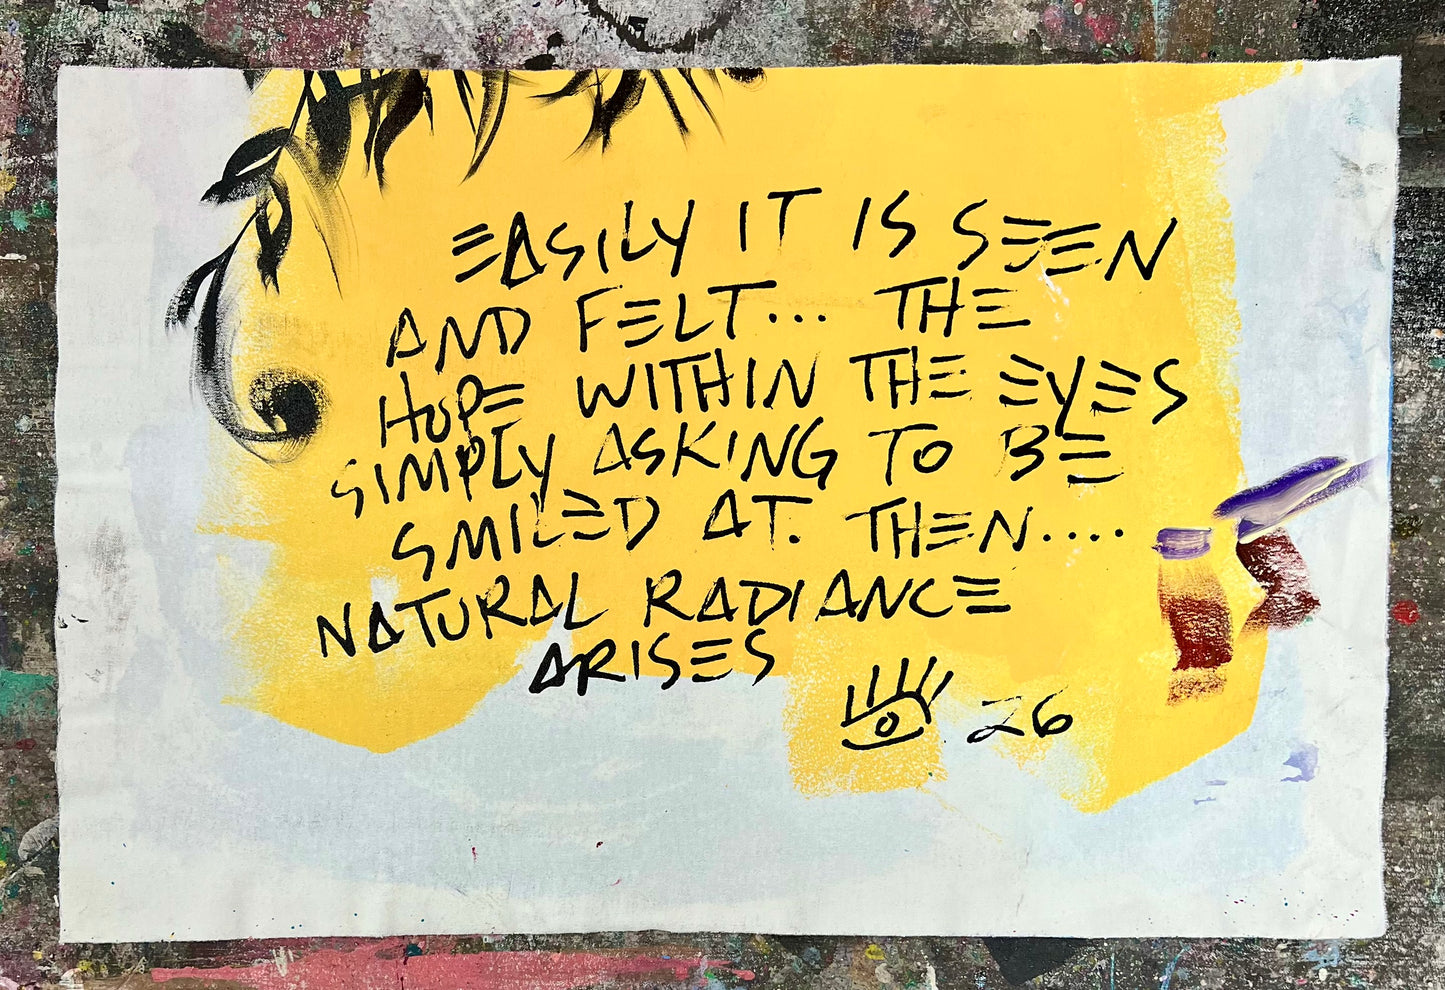 EASILY IT IS SEEN
AND FELT... THE
HOPE WITHIN THE EYES
SIMPLY ASKING TO BE
SMILED AT. THEN....
NATURAL RADIANCE
ARISES
26